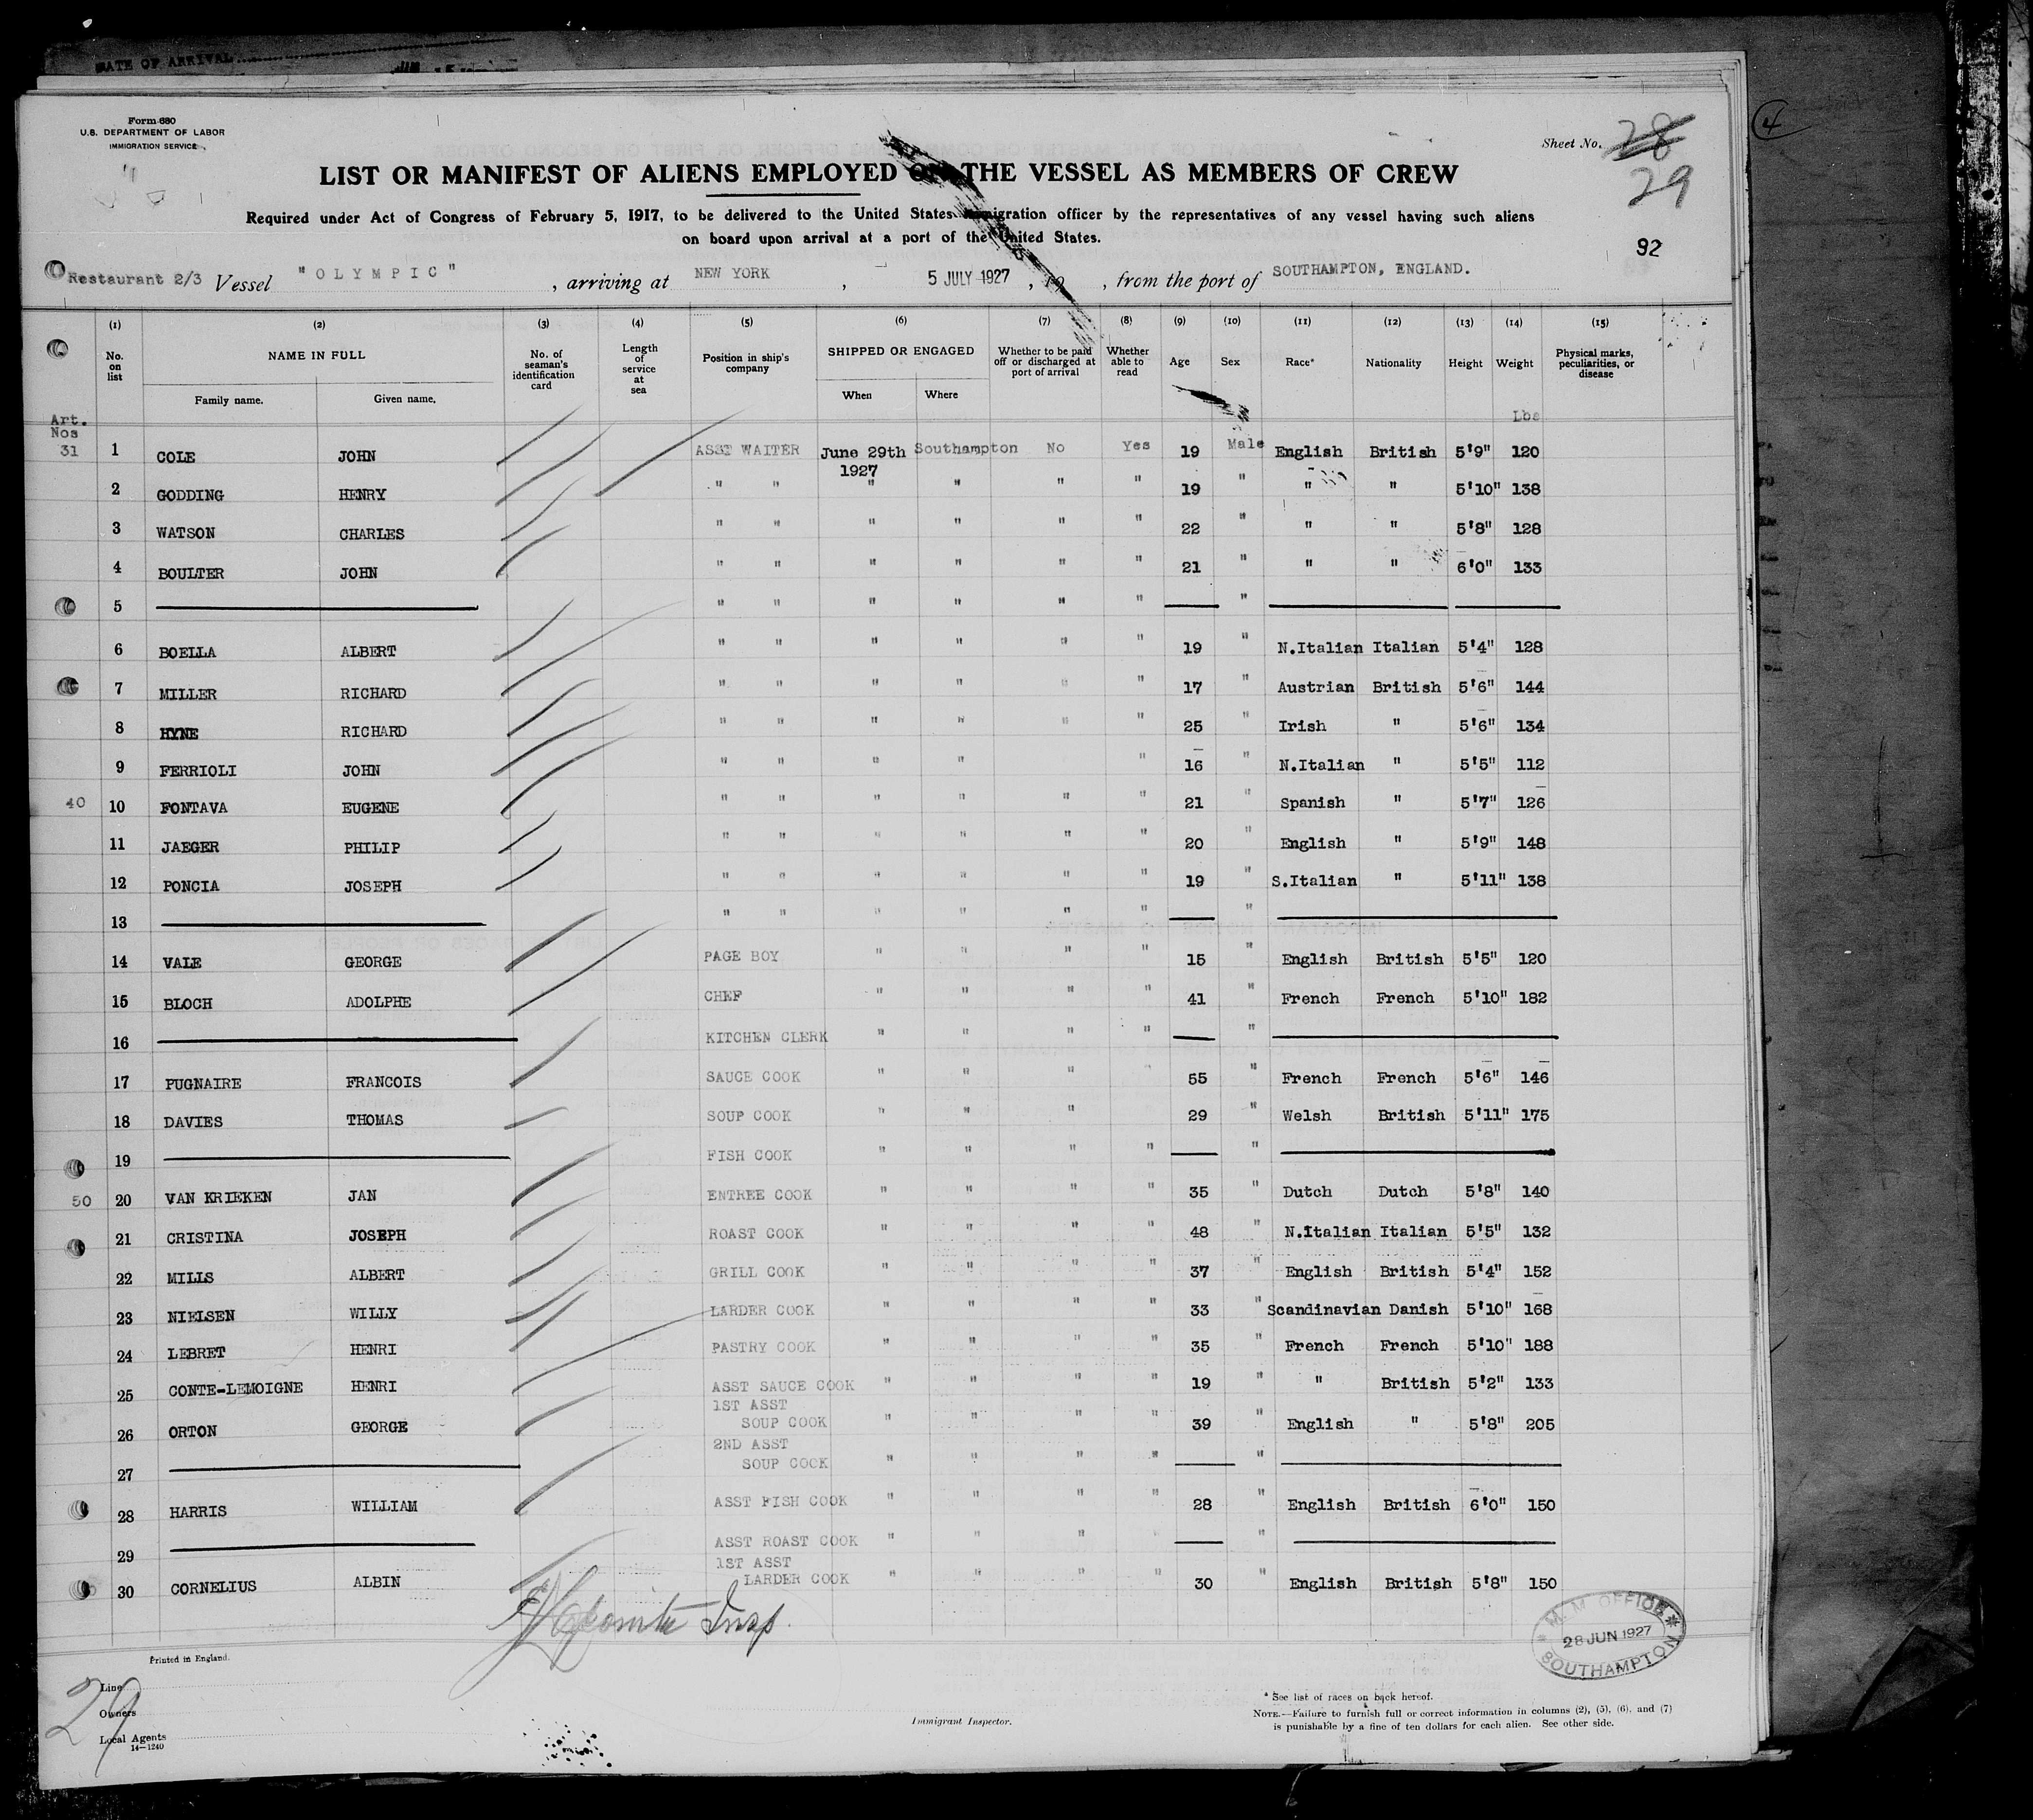 DATE OF ARRIVAL
Form 680
U.S. DEPARTMENT OF LABOR
IMMIGRATION SERVICE
Sheet No. 28
29
4
LIST OR MANIFEST OF ALIENS EMPLOYED ON THE VESSEL AS MEMBERS OF CREW
Required under Act of Congress of February 5, 1917, to be delivered to the United States Immigration officer by the representatives of any vessel having such aliens
on board upon arrival at a port of the United States.
92
Restaurant 2/3 Vessel "OLYMPIC", arriving at NEW YORK, 5 JULY 1927, 19 , from the port of SOUTHAMPTON, ENGLAND.
(1) (2) (3) (4) (5) (6) (7) (8) (9) (10) (11) (12) (13) (14) (15)
No. on list NAME IN FULL Family name. Given name. No. of seaman's identification card Length of service at sea Position in ship's company SHIPPED OR ENGAGED When Where Whether to be paid off or discharged at port of arrival Whether able to read Age Sex Race* Nationality Height Weight Physical marks, peculiarities, or disease
Art. Nos Lbs
31 1 COLE JOHN ASST WAITER June 29th 1927 Southampton No Yes 19 Male English British 5'9" 120
2 GODDING HENRY " " " " " " 19 " " " 5'10" 138
3 WATSON CHARLES " " " " " " 22 " " " 5'8" 128
4 BOULTER JOHN " " " " " " 21 " " " 6'0" 133
5 " " " " " " "
6 BOELLA ALBERT " " " " " " 19 " N.Italian Italian 5'4" 128
7 MILLER RICHARD " " " " " " 17 " Austrian British 5'6" 144
8 HYNE RICHARD " " " " " " 25 " Irish " 5'6" 134
9 FERRIOLI JOHN " " " " " 16 " N.Italian " 5'5" 112
40 10 FONTAVA EUGENE " " " " " " 21 " Spanish " 5'7" 126
11 JAEGER PHILIP " " " " " " 20 " English " 5'9" 148
12 PONCIA JOSEPH " " " " " " 19 " S.Italian " 5'11" 138
13 " " " " " " "
14 VALE GEORGE PAGE BOY " " " " 15 " English British 5'5" 120
15 BLOCH ADOLPHE CHEF " " " " 41 " French French 5'10" 182
16 KITCHEN CLERK " " " " "
17 PUGNAIRE FRANCOIS SAUCE COOK " " " " 55 " French French 5'6" 146
18 DAVIES THOMAS SOUP COOK " " " " 29 " Welsh British 5'11" 175
19 FISH COOK " " " " "
50 20 VAN KRIEKEN JAN ENTREE COOK " " " " 35 " Dutch Dutch 5'8" 140
21 CRISTINA JOSEPH ROAST COOK " " " " 48 " N.Italian Italian 5'5" 132
22 MILLS ALBERT GRILL COOK " " " " 37 " English British 5'4" 152
23 NIELSEN WILLY LARDER COOK " " " " 33 " Scandinavian Danish 5'10" 168
24 LEBRET HENRI PASTRY COOK " " " " 35 " French French 5'10" 188
25 CONTE-LEMOIGNE HENRI ASST SAUCE COOK " " " " 19 " " British 5'2" 133
26 ORTON GEORGE 1ST ASST SOUP COOK " " " " 39 " English " 5'8" 205
27 2ND ASST SOUP COOK " " " " "
28 HARRIS WILLIAM ASST FISH COOK " " " " 28 " English British 6'0" 150
29 ASST ROAST COOK " " " " "
30 CORNELIUS ALBIN 1ST ASST LARDER COOK " " " " 30 " English British 5'8" 150
Insp.
M.M. OFFICE
28 JUN 1927
SOUTHAMPTON
Printed in England.
29
Line
Owners
Local Agents
14—1240
Immigrant Inspector.
* See list of races on back hereof.
NOTE.—Failure to furnish full or correct information in columns (2), (5), (6), and (7)
is punishable by a fine of ten dollars for each alien. See other side.